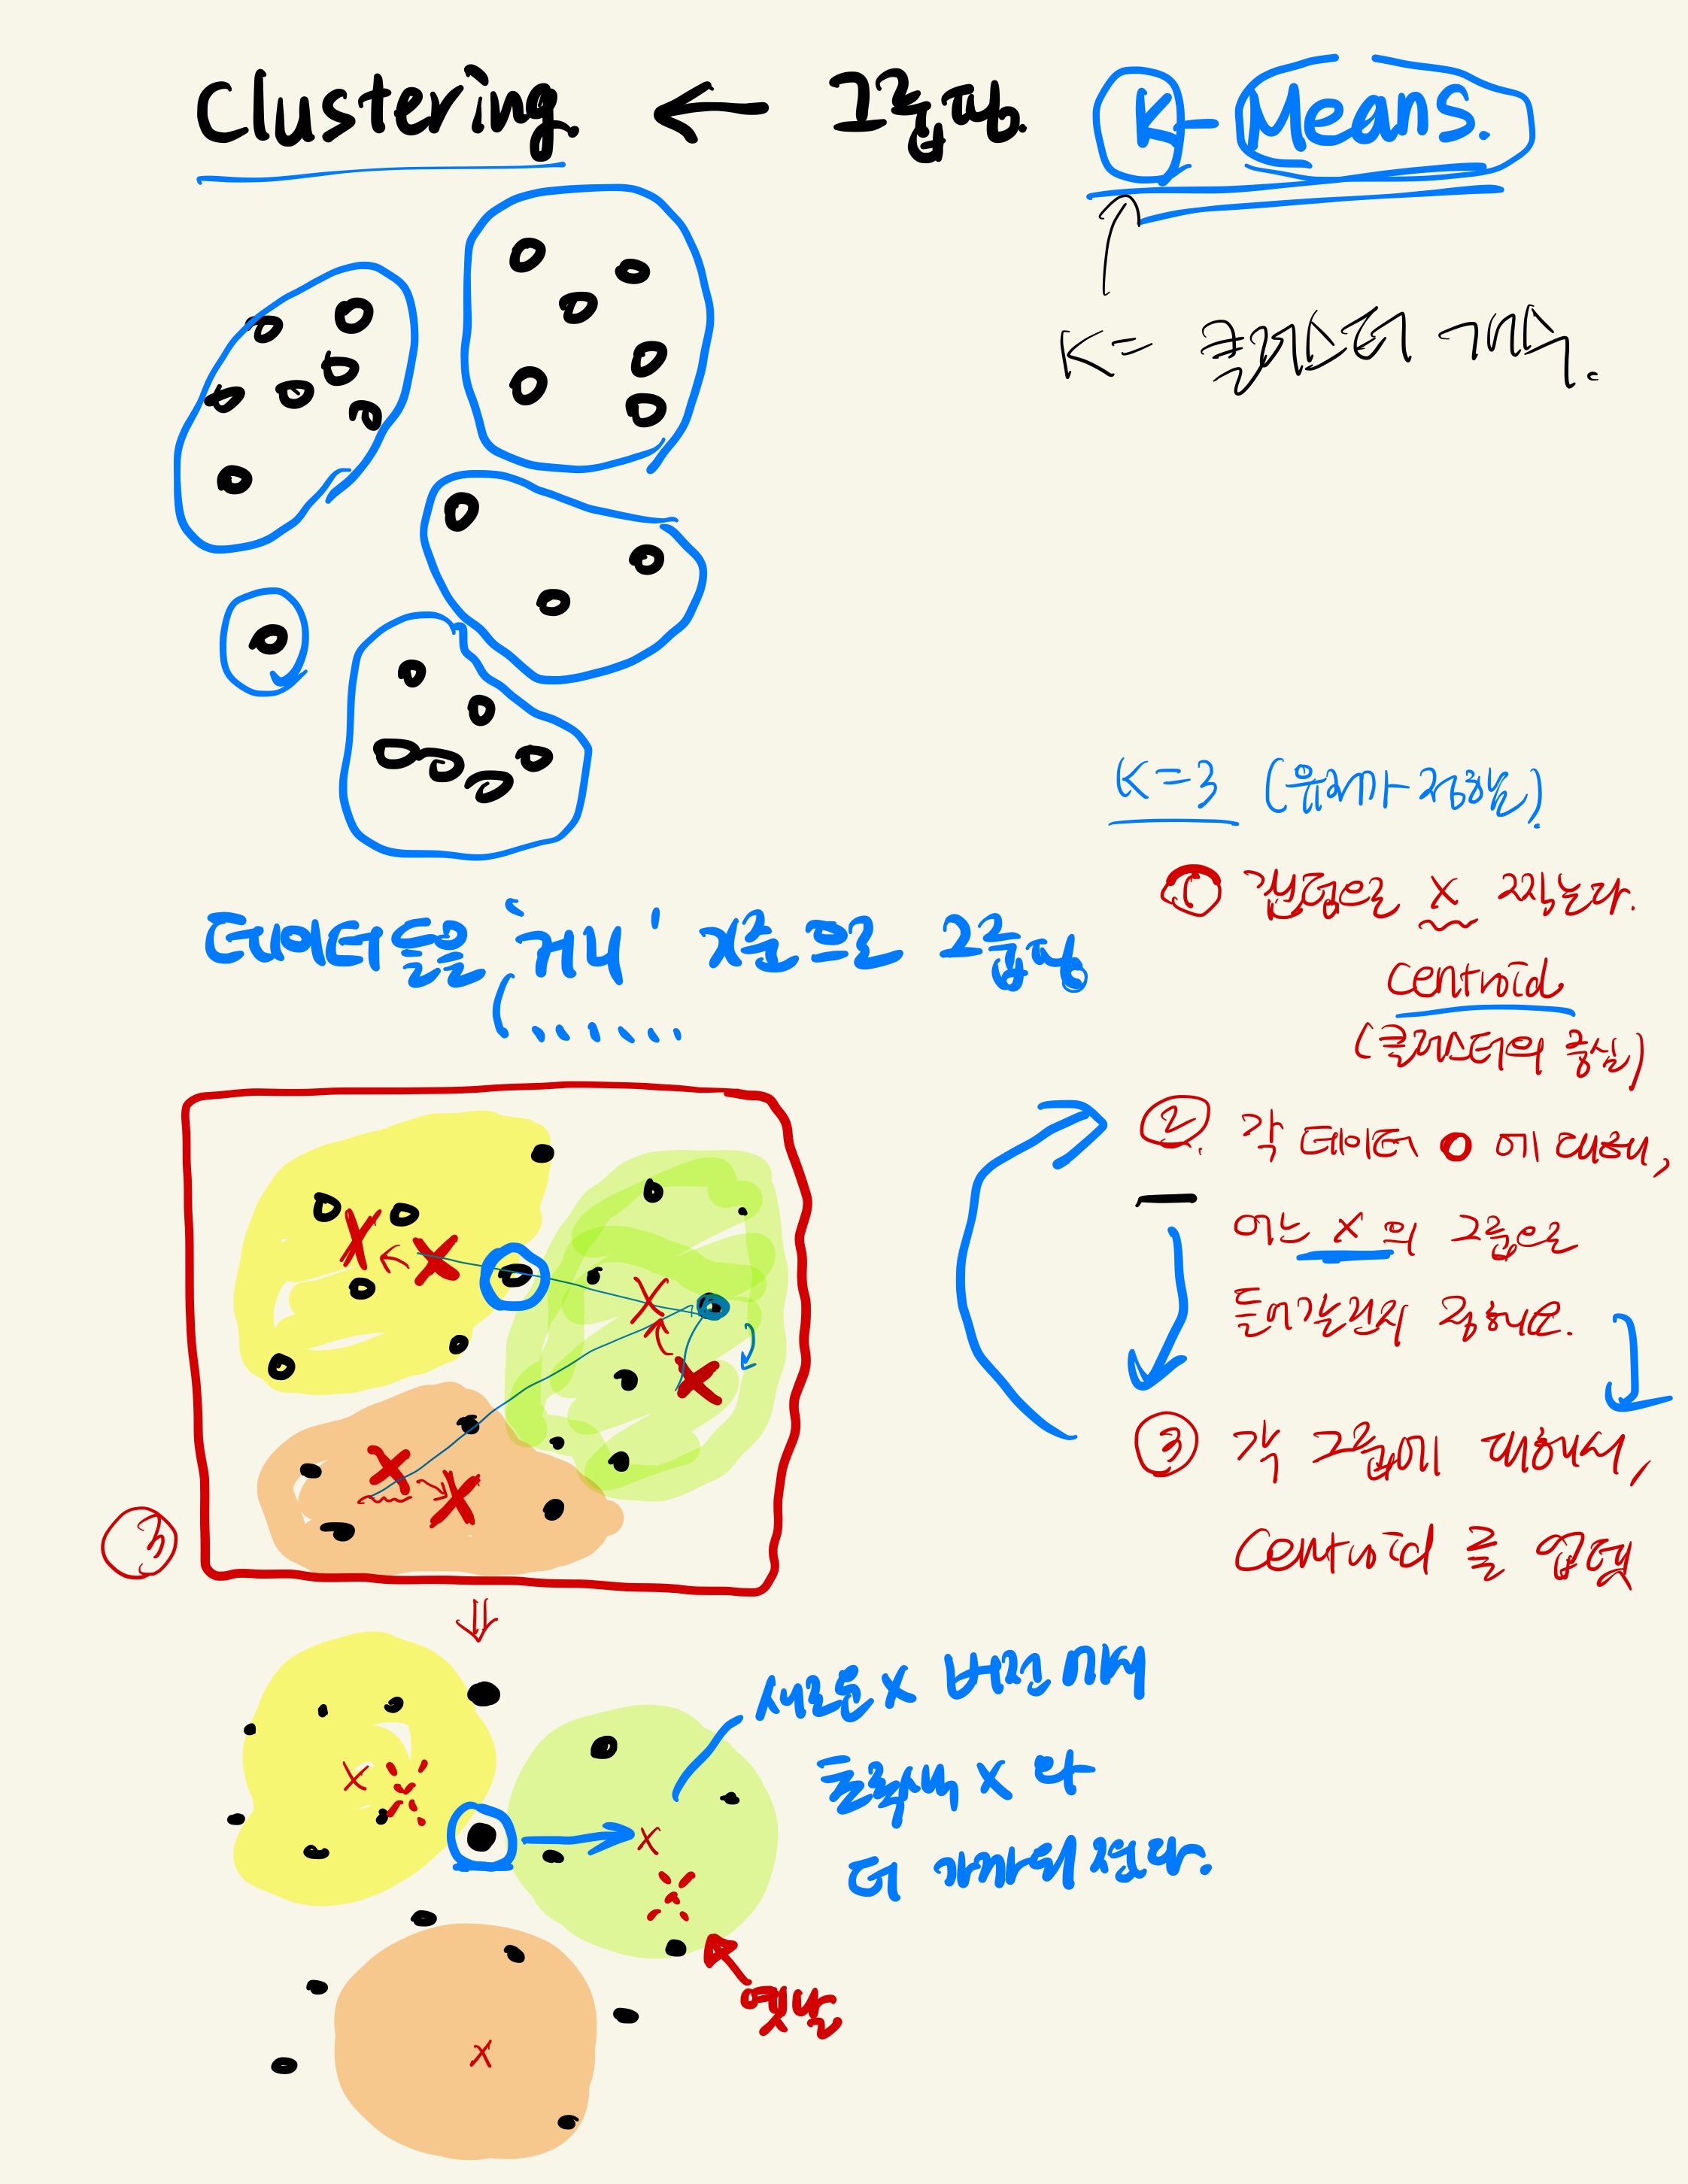 Clustering. ← 그룹핑. K-Means.
K = 클러스터 개수.
K=3 (유저가 정해줌)
데이터들을 '거리' 기준으로 그룹핑
① 랜덤으로 X 찍는다.
Centroid
(클러스터의 중심)
② 각 데이터 o 에 대해,
어느 X의 그룹으로
들어갈런지 정해요.
③ 각 그룹에 대해서,
Centroid 를 업뎃
③
새로운 X 버전이
초록색 X 와
더 가까워졌다.
옛날